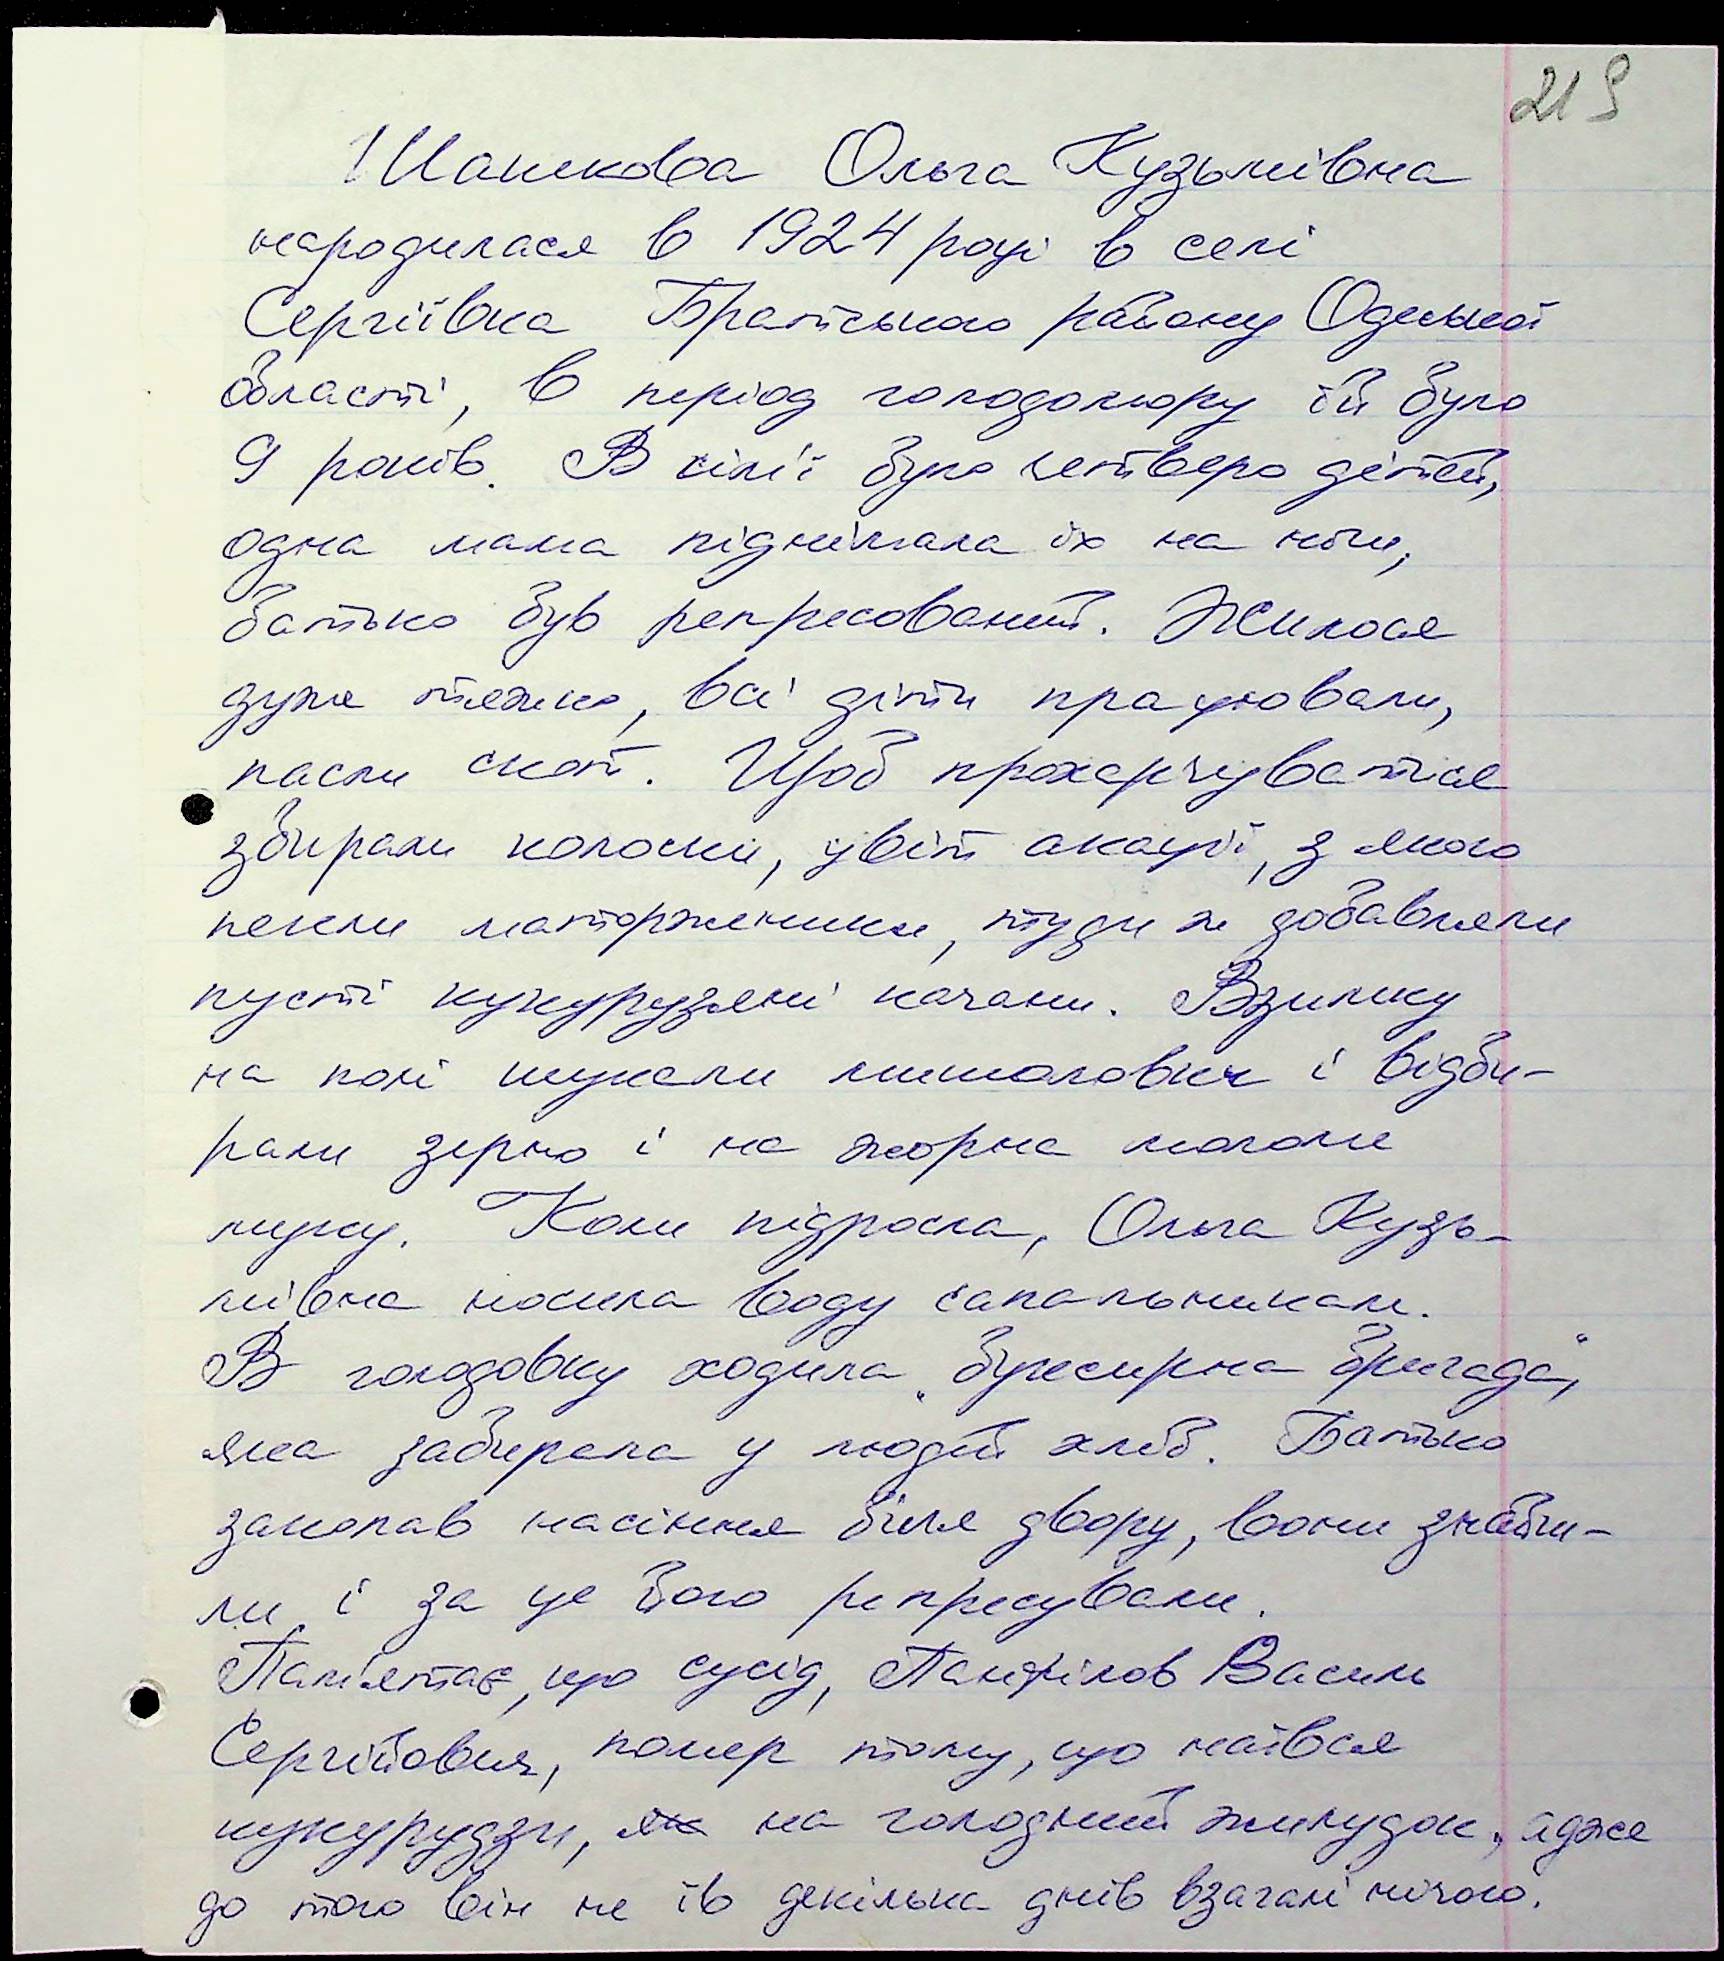 219
Шашкова Ольга Кузьмівна
народилася в 1924 році в селі
Сергіївка Братського району Одеської
області, в період голодомору їй було
9 років. В сім'ї було четверо дітей,
одна мама піднімала їх на ноги,
батько був репресований. Жилося
дуже тяжко, всі діти працювали,
пасли скот. Щоб прохарчуватися
збирали колоски, цвіт акації, з якого
пекли маторженики, туди ж добавляли
пусті кукурудзяні качани. Взимку
на полі шукали мишоловки і відби-
рали зерно і на жорна мололи
муку. Коли підросла, Ольга Кузь-
мівна носила воду сапальникам.
В голодовку ходила „буксирна бригада",
яка забирала у людей хліб. Батько
закопав насіння біля двору, вони знайш-
ли і за це його репресували.
Пам'ятає, що сусід, Панфілов Василь
Сергійович, помер тому, що наївся
кукурудзи, на голодний жилудок, адже
до того він не їв декілька днів взагалі нічого.